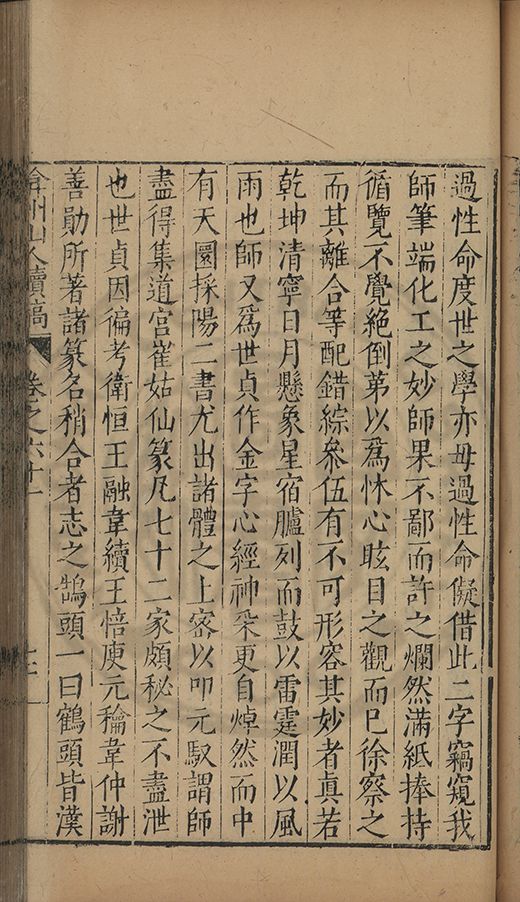 過性命度世之學亦毋過性命儗借此二字竊窺我
師筆端化工之妙師果不鄙而許之爛然滿紙捧持
循覽不覺絕倒第以爲怵心眩目之觀而已徐察之
而其離合等配錯綜叅伍有不可形容其妙者眞若
乾坤清寧日月懸象星宿臚列而鼓以雷霆潤以風
雨也師又爲世貞作金字心經神采更自焯然而中
有天圜採陽二書尤出諸體之上密以叩元馭謂師
盡得集道宮崔姑仙篆凡七十二家頗秘之不盡泄
也世貞因徧考衛恒王融韋續王愔庾元龠韋仲謝
善勛所著諸篆名稍合者志之鵠頭一曰鶴頭皆漢
弇州山人續稿 卷之六十一